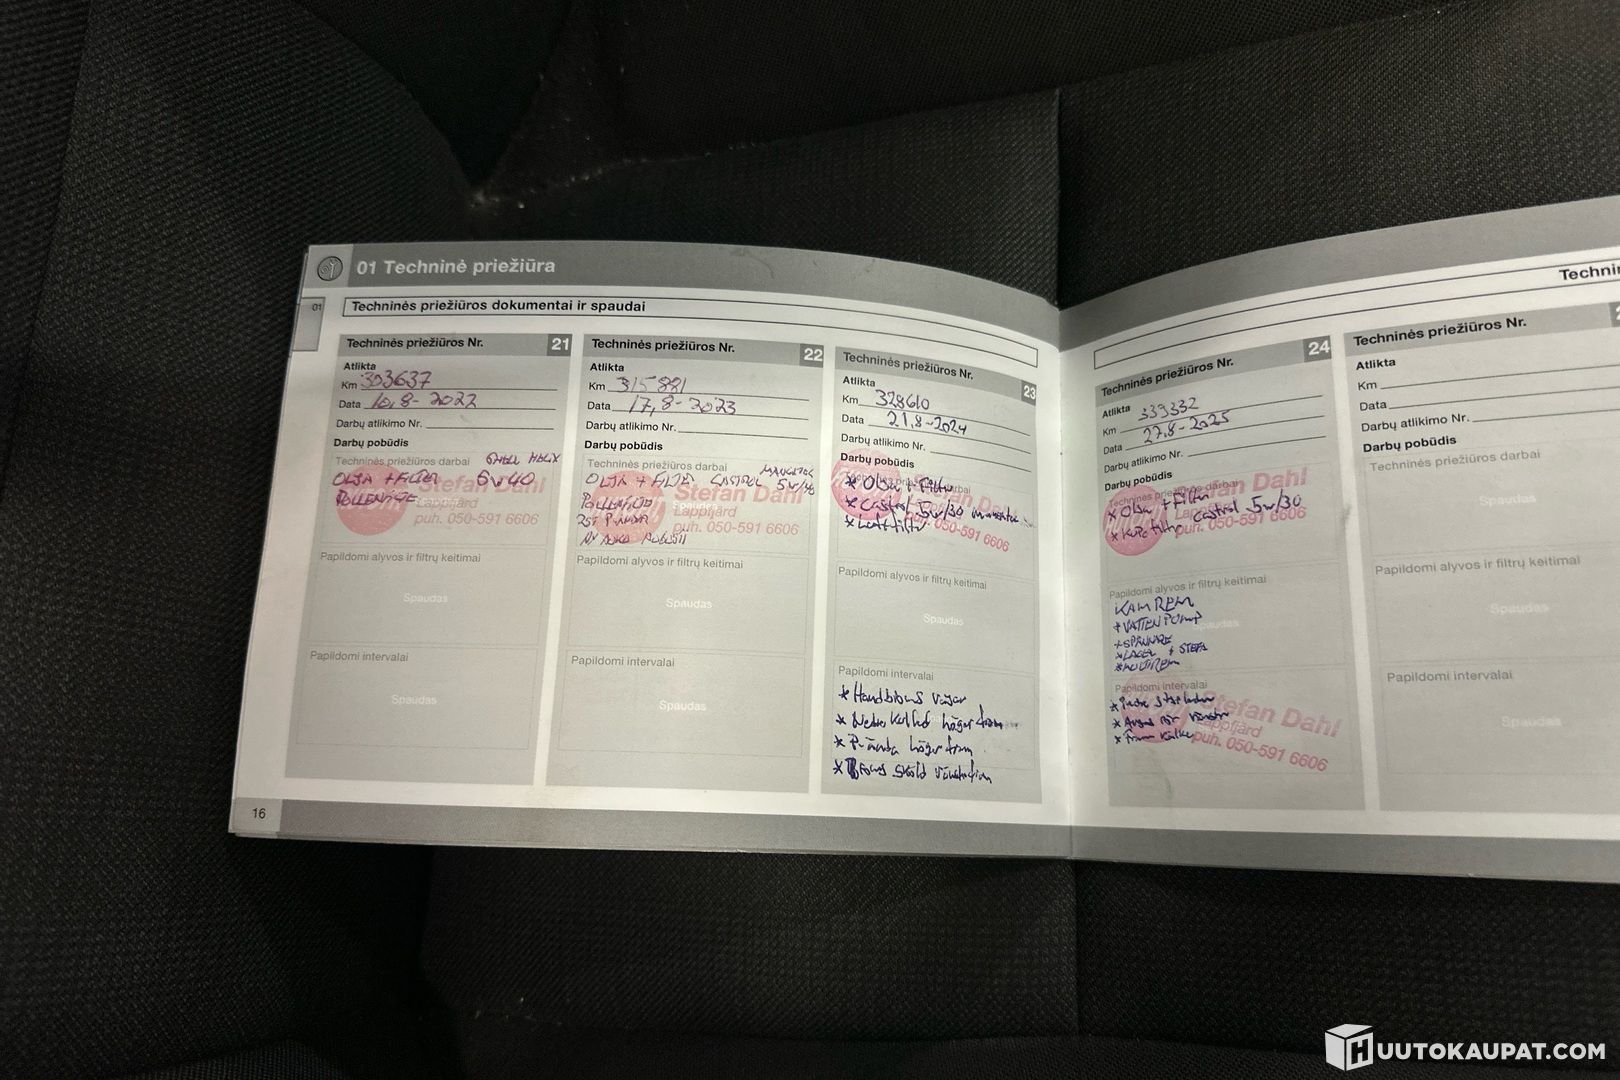 01 Techninė priežiūra
01
Techninės priežiūros dokumentai ir spaudai
Techninės priežiūros Nr. 21
Atlikta
Km 303637
Data 10,8-2022
Darbų atlikimo Nr.
Darbų pobūdis
Techninės priežiūros darbai
SHELL HELIX
OLJA + FILTER 5W40
Stefan Dahl
Lappfjärd
puh. 050-591 6606
Papildomi alyvos ir filtrų keitimai
Spaudas
Papildomi intervalai
Spaudas
16
Techninės priežiūros Nr. 22
Atlikta
Km 315881
Data 17,8-2023
Darbų atlikimo Nr.
Darbų pobūdis
Techninės priežiūros darbai
OLJA + FILTER CASTROL 5W/40
Stefan Dahl
Lappfjärd
puh. 050-591 6606
Papildomi alyvos ir filtrų keitimai
Spaudas
Papildomi intervalai
Spaudas
Techninės priežiūros Nr. 23
Atlikta
Km 328610
Data 21,8-2024
Darbų atlikimo Nr.
Darbų pobūdis
* Olja + Filter
* Castrol 5w/30
* Luftfilter
050-591 6606
Papildomi alyvos ir filtrų keitimai
Spaudas
Papildomi intervalai
* Handbroms vajer
* Nedre höger fram
* höger fram
* Broms sköld
Technin
Techninės priežiūros Nr. 24
Atlikta 333332
Km
Data 27,8-2025
Darbų atlikimo Nr.
Darbų pobūdis
Techninės priežiūros darbai
* Olja + Filter
* Castrol 5w/30
Stefan Dahl
Lappfjärd
puh. 050-591 6606
Papildomi alyvos ir filtrų keitimai
KAMREM
+ VATTENPUMP
+ SPÄNNARE
* LAGER + STEFA
Spaudas
Papildomi intervalai
Stefan Dahl
Lappfjärd
puh. 050-591 6606
Techninės priežiūros Nr.
Atlikta
Km
Data
Darbų atlikimo Nr.
Darbų pobūdis
Techninės priežiūros darbai
Spaudas
Papildomi alyvos ir filtrų keitimai
Spaudas
Papildomi intervalai
Spaudas
HUUTOKAUPAT.COM